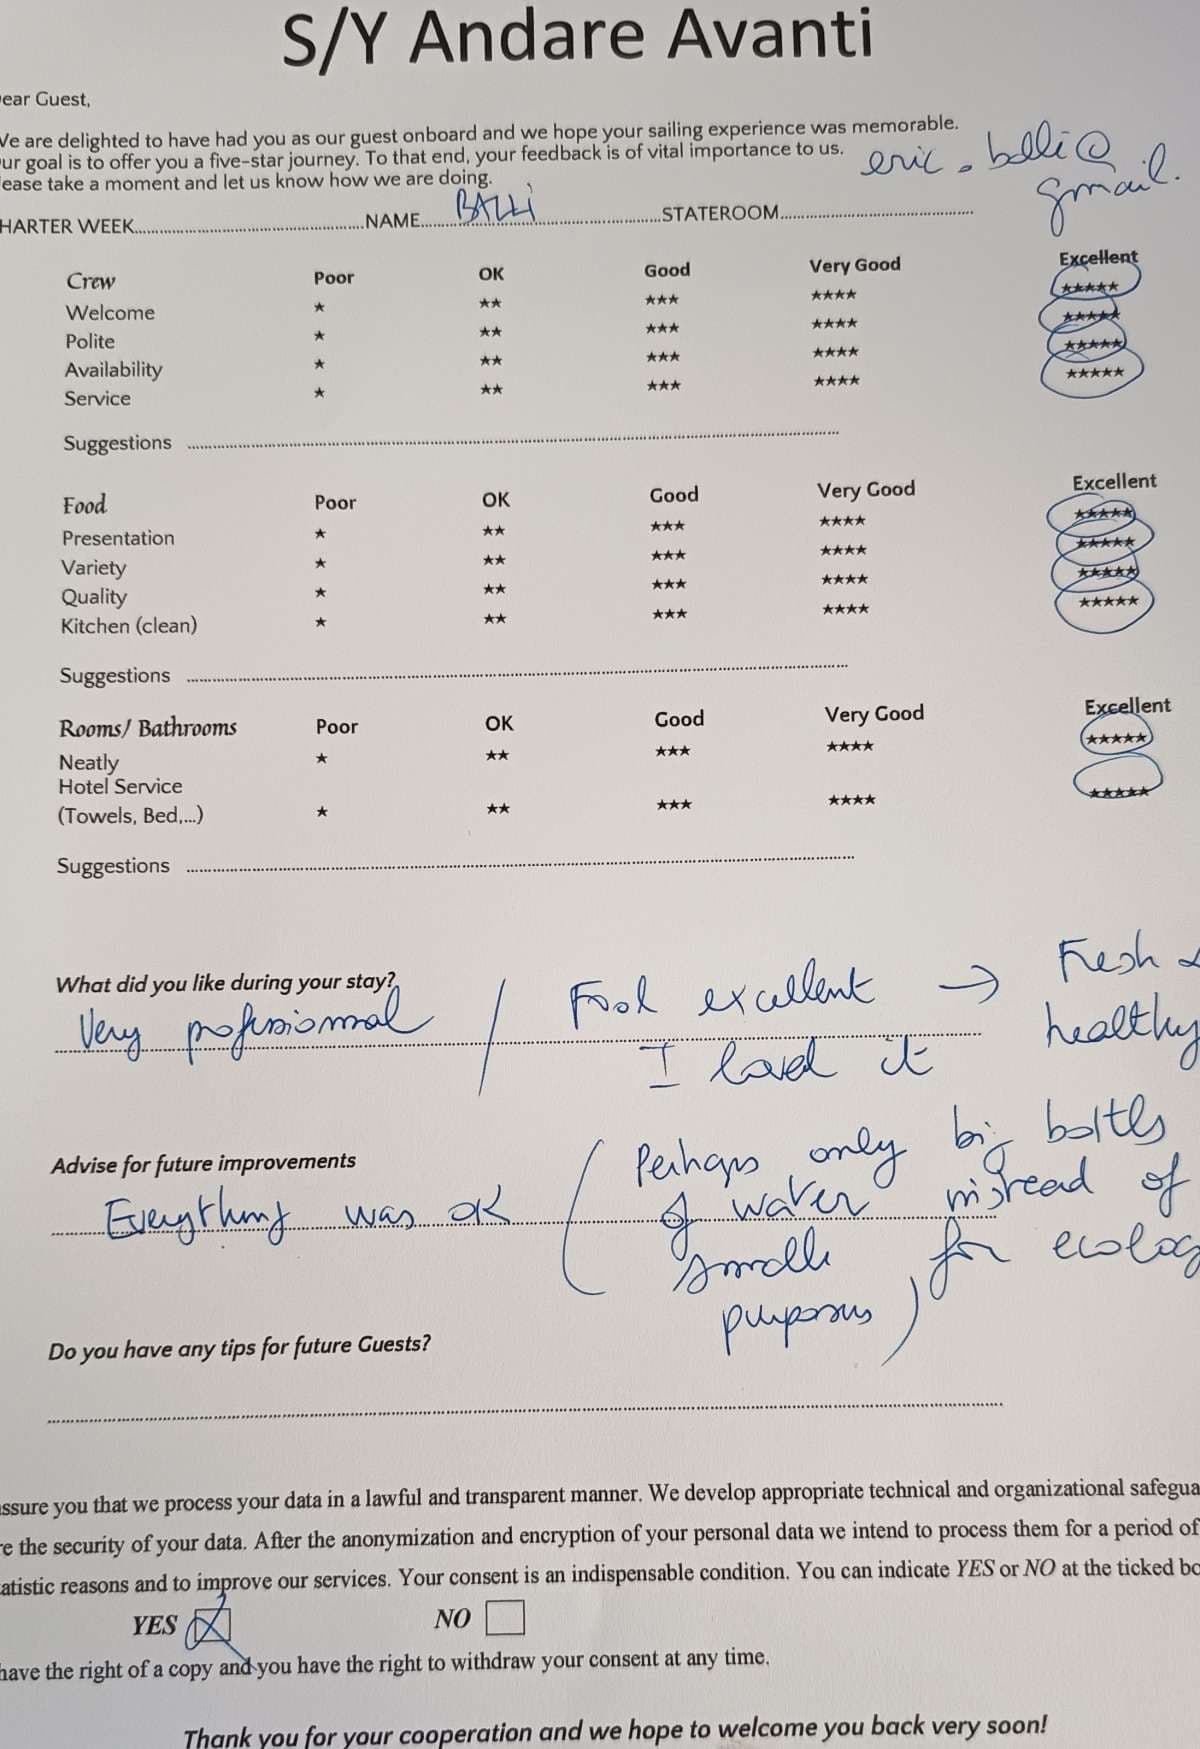 S/Y Andare Avanti
ear Guest,
We are delighted to have had you as our guest onboard and we hope your sailing experience was memorable.
ur goal is to offer you a five-star journey. To that end, your feedback is of vital importance to us.
ease take a moment and let us know how we are doing.
eric.
@
gmail.
HARTER WEEK..........NAME..........STATEROOM..........
Crew Poor OK Good Very Good Excellent
Welcome ★ ★★ ★★★ ★★★★ ★★★★★
Polite ★ ★★ ★★★ ★★★★ ★★★★★
Availability ★ ★★ ★★★ ★★★★ ★★★★★
Service ★ ★★ ★★★ ★★★★ ★★★★★
Suggestions ..........
Food Poor OK Good Very Good Excellent
Presentation ★ ★★ ★★★ ★★★★ ★★★★★
Variety ★ ★★ ★★★ ★★★★ ★★★★★
Quality ★ ★★ ★★★ ★★★★ ★★★★★
Kitchen (clean) ★ ★★ ★★★ ★★★★ ★★★★★
Suggestions ..........
Rooms/ Bathrooms Poor OK Good Very Good Excellent
Neatly ★ ★★ ★★★ ★★★★ ★★★★★
Hotel Service
(Towels, Bed,...) ★ ★★ ★★★ ★★★★ ★★★★★
Suggestions ..........
What did you like during your stay?
Very professionnal / Food excellent → Fresh &
I loved it healthy
Advise for future improvements
Everything was OK (Perhaps only big bottles
of water instead of
smalls for ecolog
purposes)
Do you have any tips for future Guests?
assure you that we process your data in a lawful and transparent manner. We develop appropriate technical and organizational safegua
re the security of your data. After the anonymization and encryption of your personal data we intend to process them for a period of
tatistic reasons and to improve our services. Your consent is an indispensable condition. You can indicate YES or NO at the ticked bo
YES NO
have the right of a copy and you have the right to withdraw your consent at any time.
Thank you for your cooperation and we hope to welcome you back very soon!